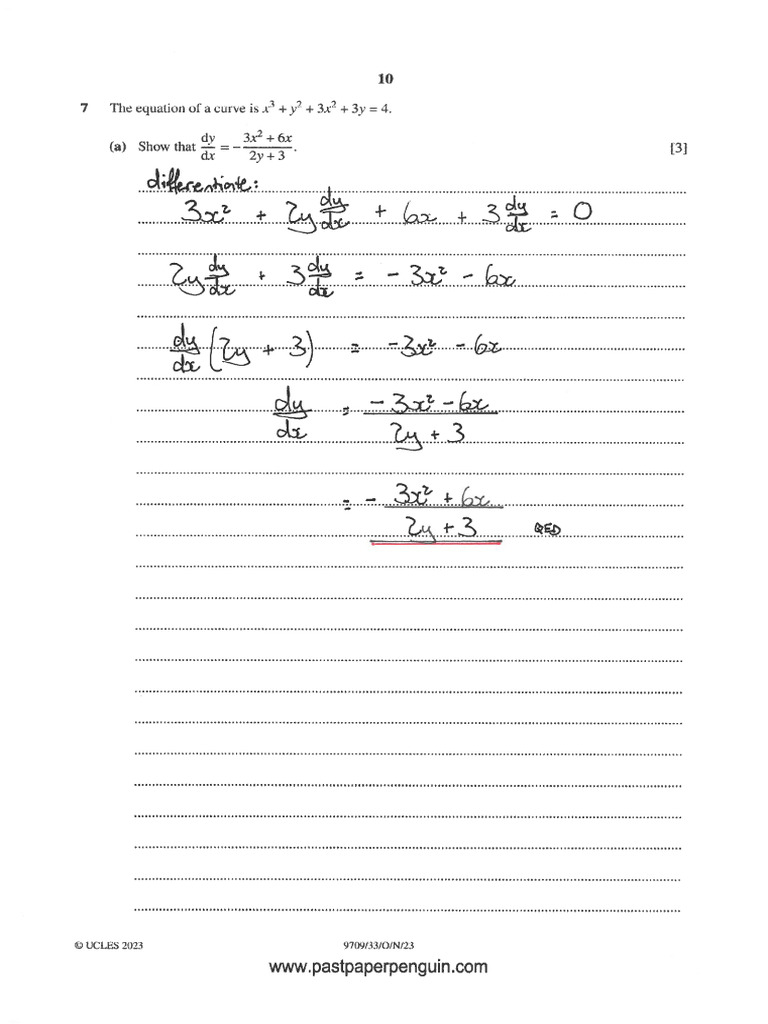 10
7 The equation of a curve is x³ + y² + 3x² + 3y = 4.
(a) Show that dy/dx = − (3x² + 6x)/(2y + 3). [3]
differentiate:
3x² + 2y dy/dx + 6x + 3 dy/dx = 0
2y dy/dx + 3 dy/dx = - 3x² - 6x
dy/dx (2y + 3) = -3x² - 6x
dy/dx = (-3x² - 6x)/(2y + 3)
= - (3x² + 6x)/(2y + 3) QED
© UCLES 2023 9709/33/O/N/23
www.pastpaperpenguin.com